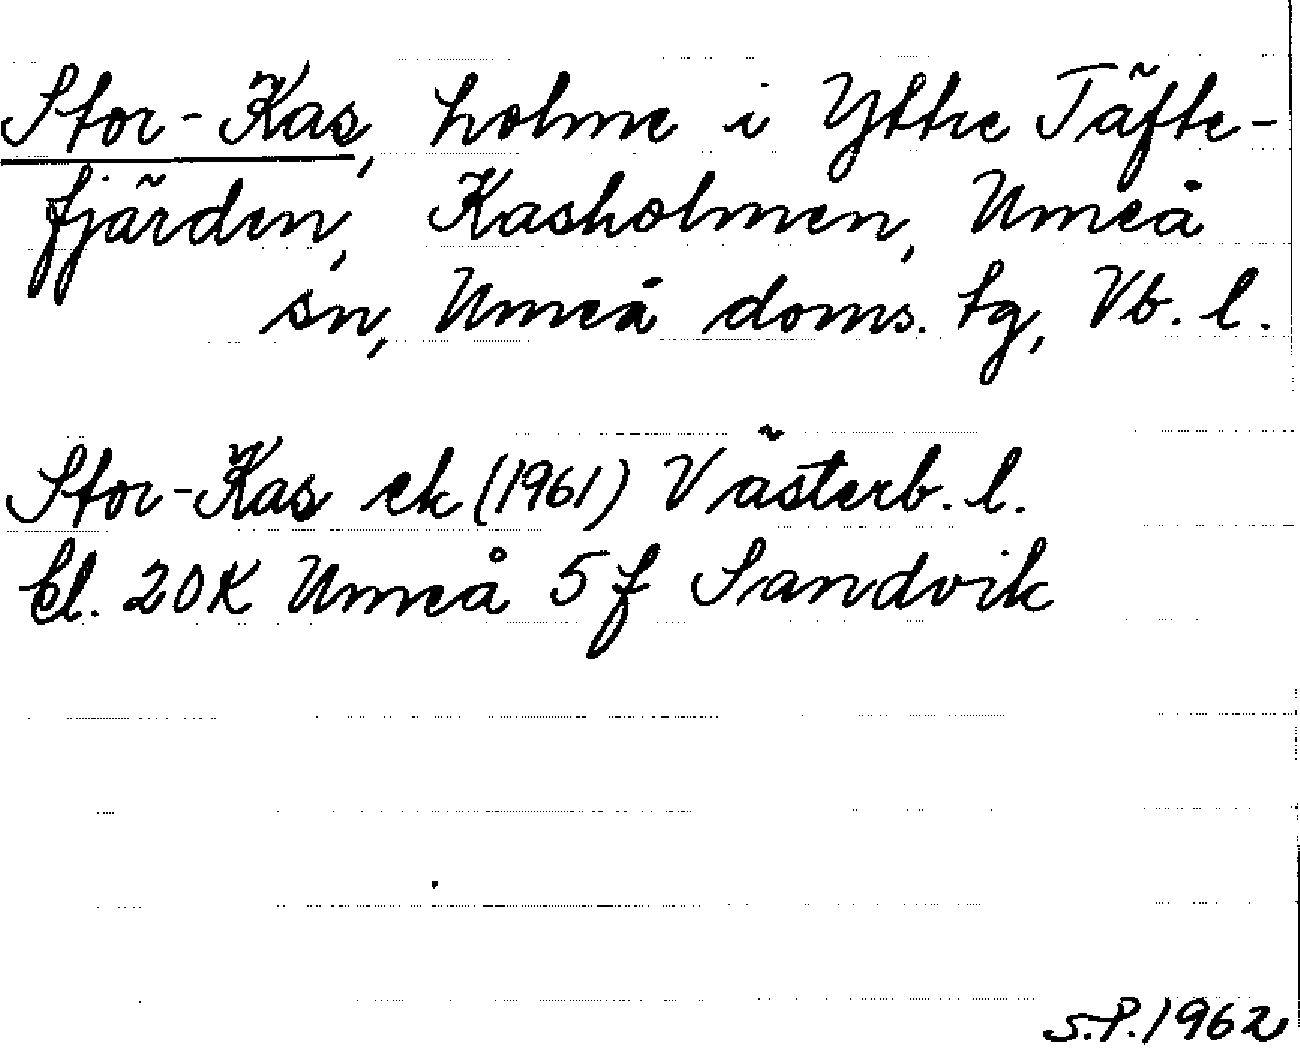 Stor-Kas, holme i Yttre Täfte-
fjärden, Kasholmen, Umeå
sn, Umeå doms. tg, Vb. l.
Stor-Kas ek (1961) Västerb. l.
bl. 20K Umeå 5f Sandvik
S.P. 1962